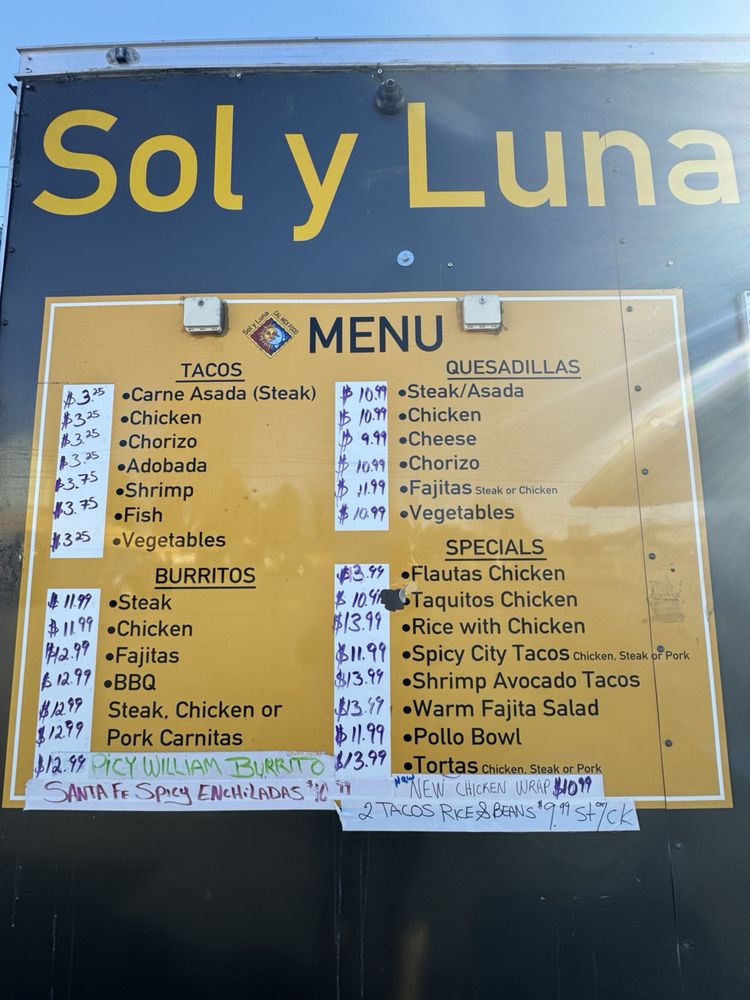 Sol y Luna
Sol y Luna CAL MEX FOOD
MENU
TACOS
$3.25 •Carne Asada (Steak)
$3.25 •Chicken
$3.25 •Chorizo
$3.25 •Adobada
$3.75 •Shrimp
$3.75 •Fish
$3.25 •Vegetables
BURRITOS
$11.99 •Steak
$11.99 •Chicken
$12.99 •Fajitas
$12.99 •BBQ
$12.99 Steak, Chicken or
$12.99 Pork Carnitas
$12.99 PICY WILLIAM BURRITO
SANTA FE SPICY ENCHILADAS $10.99
QUESADILLAS
$10.99 •Steak/Asada
$10.99 •Chicken
$9.99 •Cheese
$10.99 •Chorizo
$11.99 •Fajitas Steak or Chicken
$10.99 •Vegetables
SPECIALS
$13.99 •Flautas Chicken
$10.99 •Taquitos Chicken
$13.99 •Rice with Chicken
$11.99 •Spicy City Tacos Chicken, Steak or Pork
$13.99 •Shrimp Avocado Tacos
$13.99 •Warm Fajita Salad
$11.99 •Pollo Bowl
$13.99 •Tortas Chicken, Steak or Pork
New NEW CHICKEN WRAP $10.99
2 TACOS RICE & BEANS $9.99 St/CK